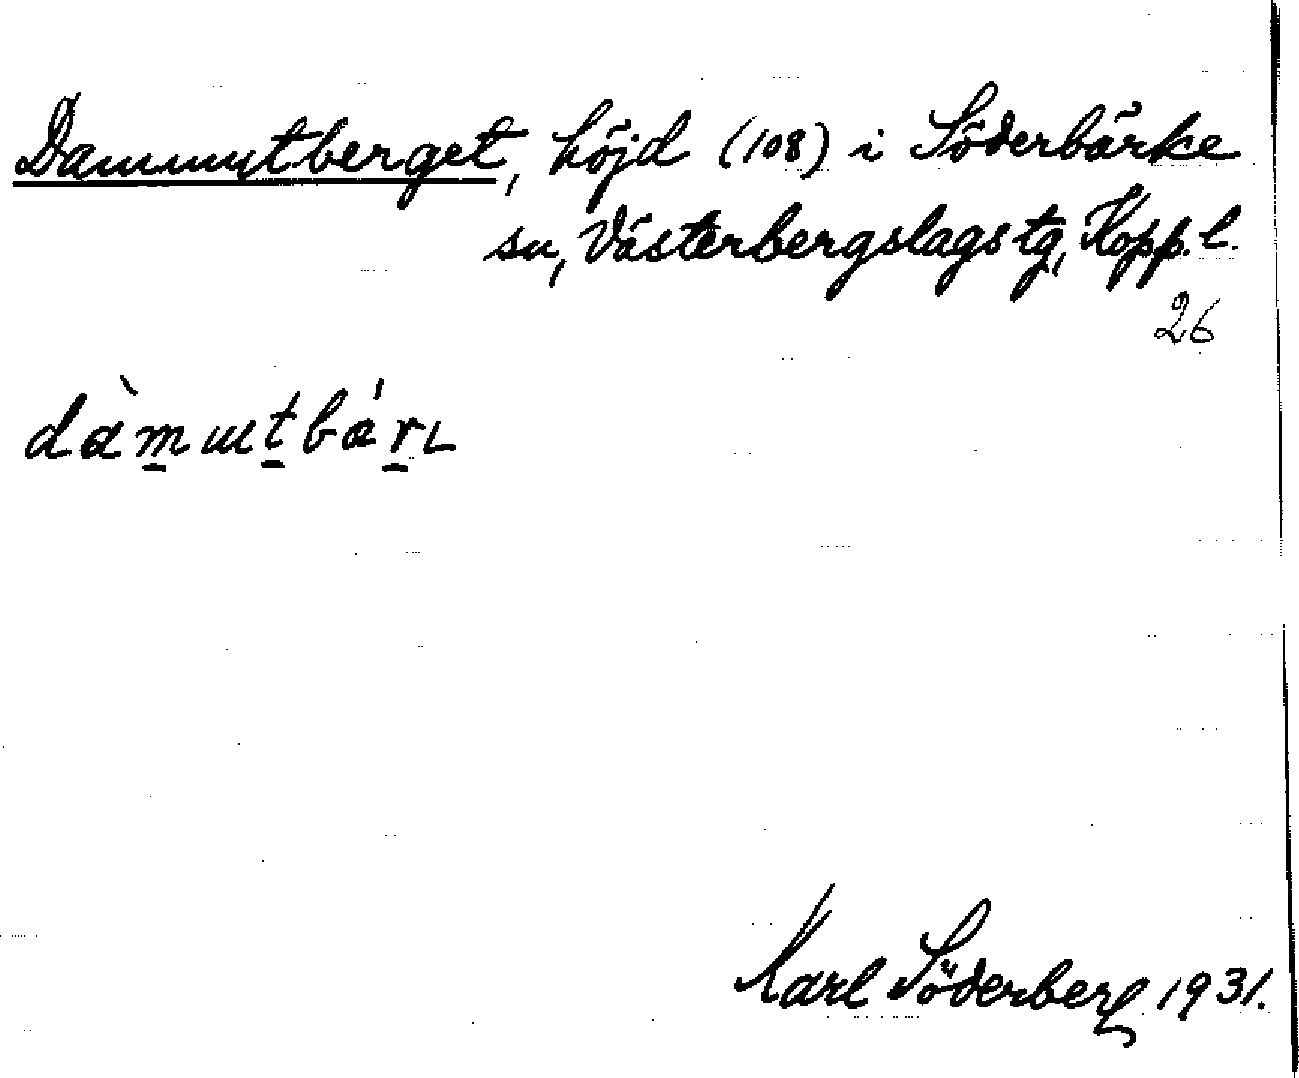 Dammutberget, höjd (108) i Söderbärke
sn, Västerbergslags tg, Kopp. l.
26
Karl Söderberg 1931.